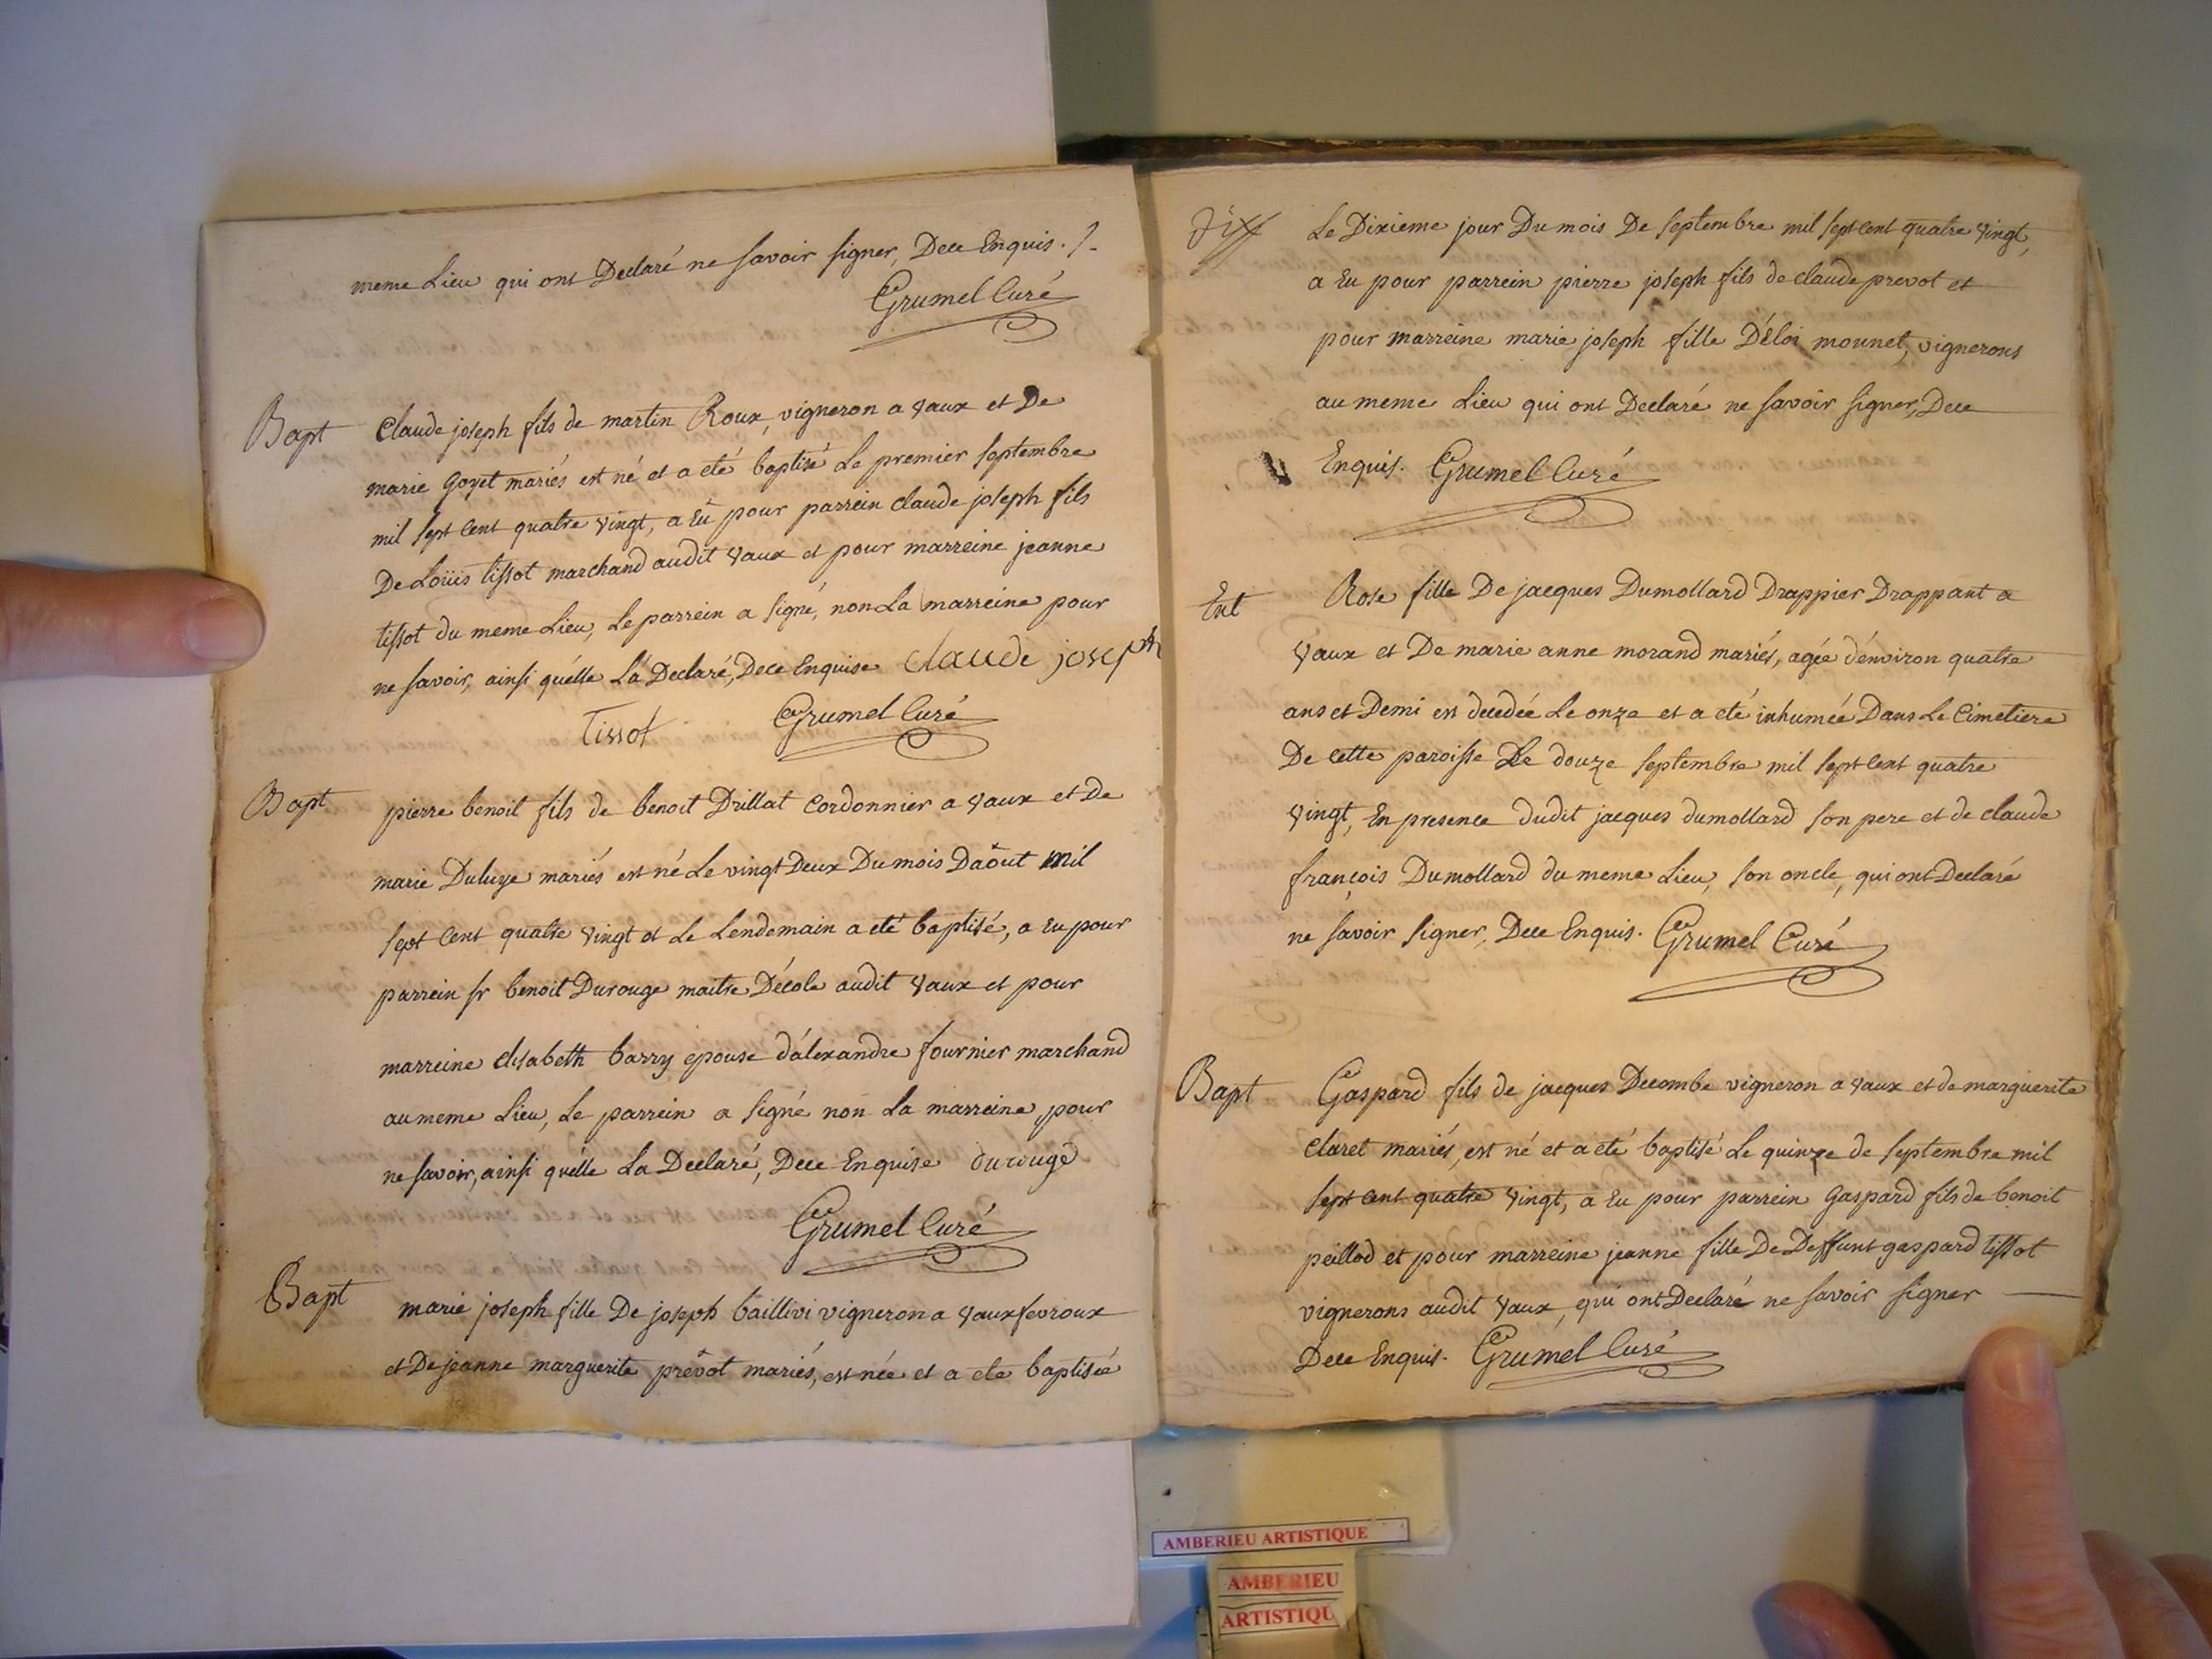 meme Lieu qui ont Declaré ne savoir signer, Dece Enquis ./.
Grumel Curé
Bapt
Claude joseph fils de martin Roux, vigneron a vaux et De
marie goyet mariés est né et a eté baptisé Le premier septembre
mil sept Cent quatre vingt, a Eü pour parrein claude joseph fils
De Loüis tissot marchand audit vaux et pour marreine jeanne
tissot du meme Lieu, Le parrein a signé, non La marreine pour
ne savoir, ainsi qu'elle L'a Declaré, Dece Enquise Claude joseph
Tissot Grumel Curé
Bapt
pierre benoit fils de benoit Drillat Cordonnier a vaux et de
marie Duluye mariés est né Le vingt Deux Du mois Daôut mil
sept Cent quatre vingt et Le Lendemain a eté baptisé, a Eu pour
parrein sr benoit Durouge maitre D'école audit vaux et pour
marreine elisabeth barry epouse d'alexandre fournier marchand
au meme Lieu, Le parrein a signé non La marreine, pour
ne savoir, ainsi qu'elle La Declaré, Dece Enquise durouge
Grumel Curé
Bapt
marie joseph fille De joseph baillivi vigneron a vaux fevroux
et De jeanne marguerite prévot mariés, est née et a ete baptisée
Le Dixieme jour Du mois De septembre mil sept Cent quatre vingt,
a Eu pour parrein pierre joseph fils de claude prevot et
pour marreine marie joseph fille D'éloi mounet, vignerons
au meme Lieu qui ont Declaré ne savoir signer, Dece
Enquis. Grumel Curé
Ent
Rose fille De jacques Dumollard Drappier Drappant a
vaux et De marie anne morand mariés, agée d'environ quatre
ans et Demi est decedée Le onze et a eté inhumée Dans Le Cimetiere
De Cette paroisse Le douze septembre mil sept Cent quatre
vingt, En presence dudit jacques dumollard son pere et de claude
françois Dumollard du meme Lieu, son oncle, qui ont Declaré
ne savoir signer, Dece Enquis. Grumel Curé
Bapt
Gaspard fils de jacques Decombe vigneron a vaux et de marguerite
Claret mariés, est né et a eté baptisé Le quinze de septembre mil
sept Cent quatre vingt, a Eu pour parrein gaspard fils de benoit
peillod et pour marreine jeanne fille De Deffunt gaspard tissot
vignerons audit vaux, qui ont Declaré ne savoir signer
Dece Enquis. Grumel Curé
AMBERIEU ARTISTIQUE
AMBERIEU
ARTISTIQU